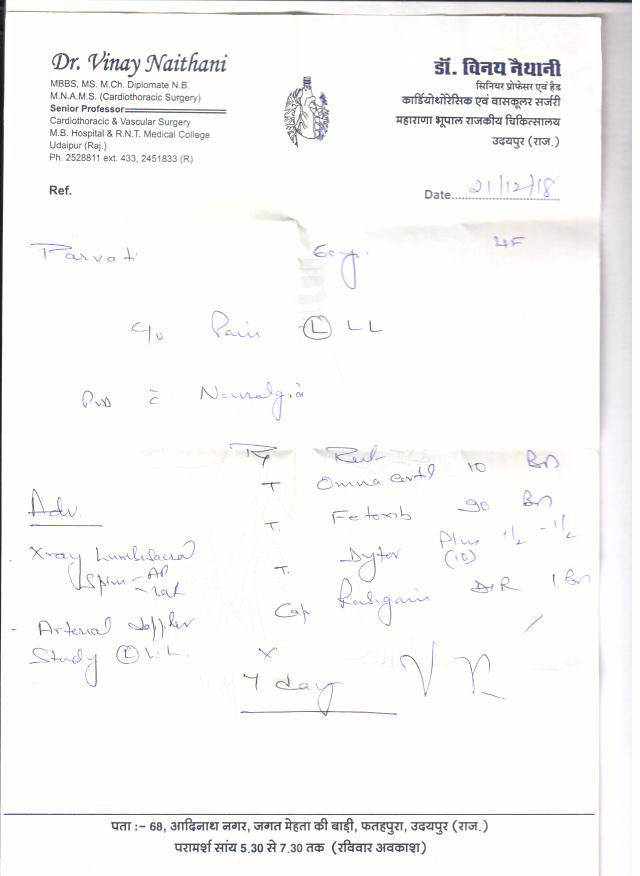 Dr. Vinay Naithani
MBBS, MS. M.Ch. Diplomate N.B.
M.N.A.M.S. (Cardiothoracic Surgery)
Senior Professor
Cardiothoracic & Vascular Surgery
M.B. Hospital & R.N.T. Medical College
Udaipur (Raj.)
Ph. 2528811 ext. 433, 2451833 (R)
डॉ. विनय नैथानी
सिनियर प्रोफेसर एवं हैड
कार्डियोथोरेसिक एवं वासकूलर सर्जरी
महाराणा भूपाल राजकीय चिकित्सालय
उदयपुर (राज.)
Ref.
Date 21/12/18
Parvati
c/o Pain L LL
Neuralgia
Rx Rest
T. 10
T. 90
T. Dytor Plus (10) 1/2 - 1/2
Cap
x
7 day
Adv.
Xray Lumbosacral
Spine AP
Lat
- Arterial Doppler
Study L L.L.
पता :– 68, आदिनाथ नगर, जगत मेहता की बाड़ी, फतहपुरा, उदयपुर (राज.)
परामर्श सांय 5.30 से 7.30 तक (रविवार अवकाश)